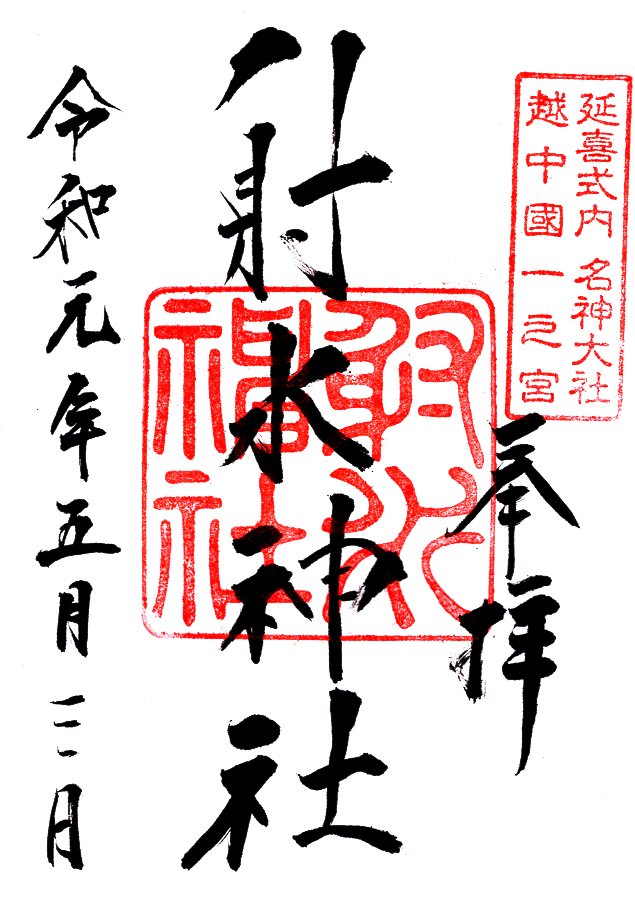 延喜式内 名神大社
越中國一之宮
奉拝
射水神社
射水
神社
令和元年五月三日